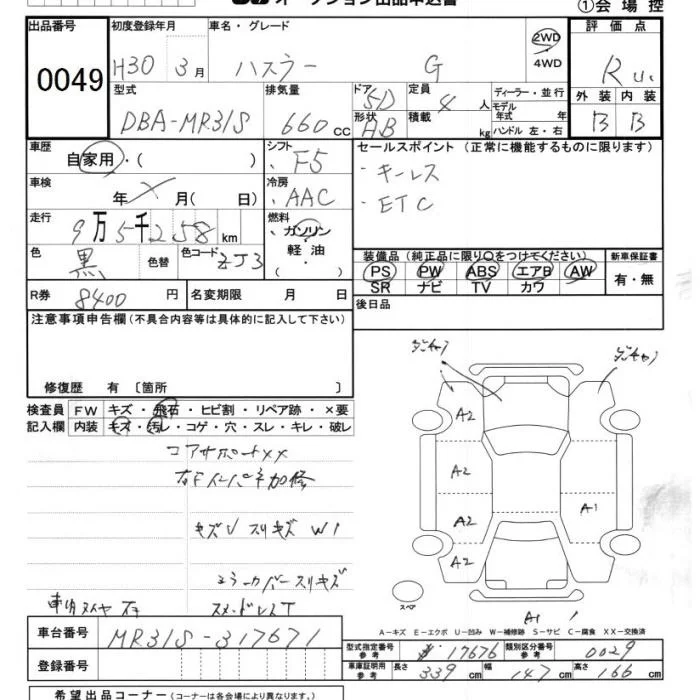 ①会場控
出品番号 初度登録年月 車名・グレード 評価点
0049 H30 3月 ハスラー G 2WD 4WD R
外装 内装
B B
型式 排気量 ドア 定員 ディーラー・並行
DBA-MR31S 660cc 5D 4人 モデル年式 年
形状 積載
AB kg ハンドル 左・右
車歴 シフト セールスポイント(正常に機能するものに限ります)
自家用・( ) F5 ・キーレス
車検 冷房 ・ETC
年 月( 日) AAC
走行 燃料
9万5千258km ガソリン
軽油
・( )
色 色替 色コード
黒 ZJ3
装備品(純正品に限り○をつけてください) 新車保証書
PS PW ABS エアB AW 有・無
SR ナビ TV カワ
R券 8400円 名変期限 月 日 後日品
注意事項申告欄(不具合内容等は具体的に記入して下さい)
修復歴 有〔箇所 〕
検査員 FW キズ・飛石・ヒビ割・リペア跡・×要
記入欄 内装 キズ・汚レ・コゲ・穴・スレ・キレ・破レ
コアサポートXX
右Fインパネ加修
スリキズ W1
ミラーカバースリキズ
A2
A2
A2
A2
A1
A1
スペア
A-キズ E-エクボ U-凹み W-補修跡 S-サビ C-腐食 XX-交換済
車台番号 MR31S-317671
型式指定番号 参考 17676 類別区分番号 参考 0029
登録番号
車庫証明用 参考 長さ 339cm 幅 147cm 高さ 166cm
希望出品コーナー(コーナーは各会場により異なります。)